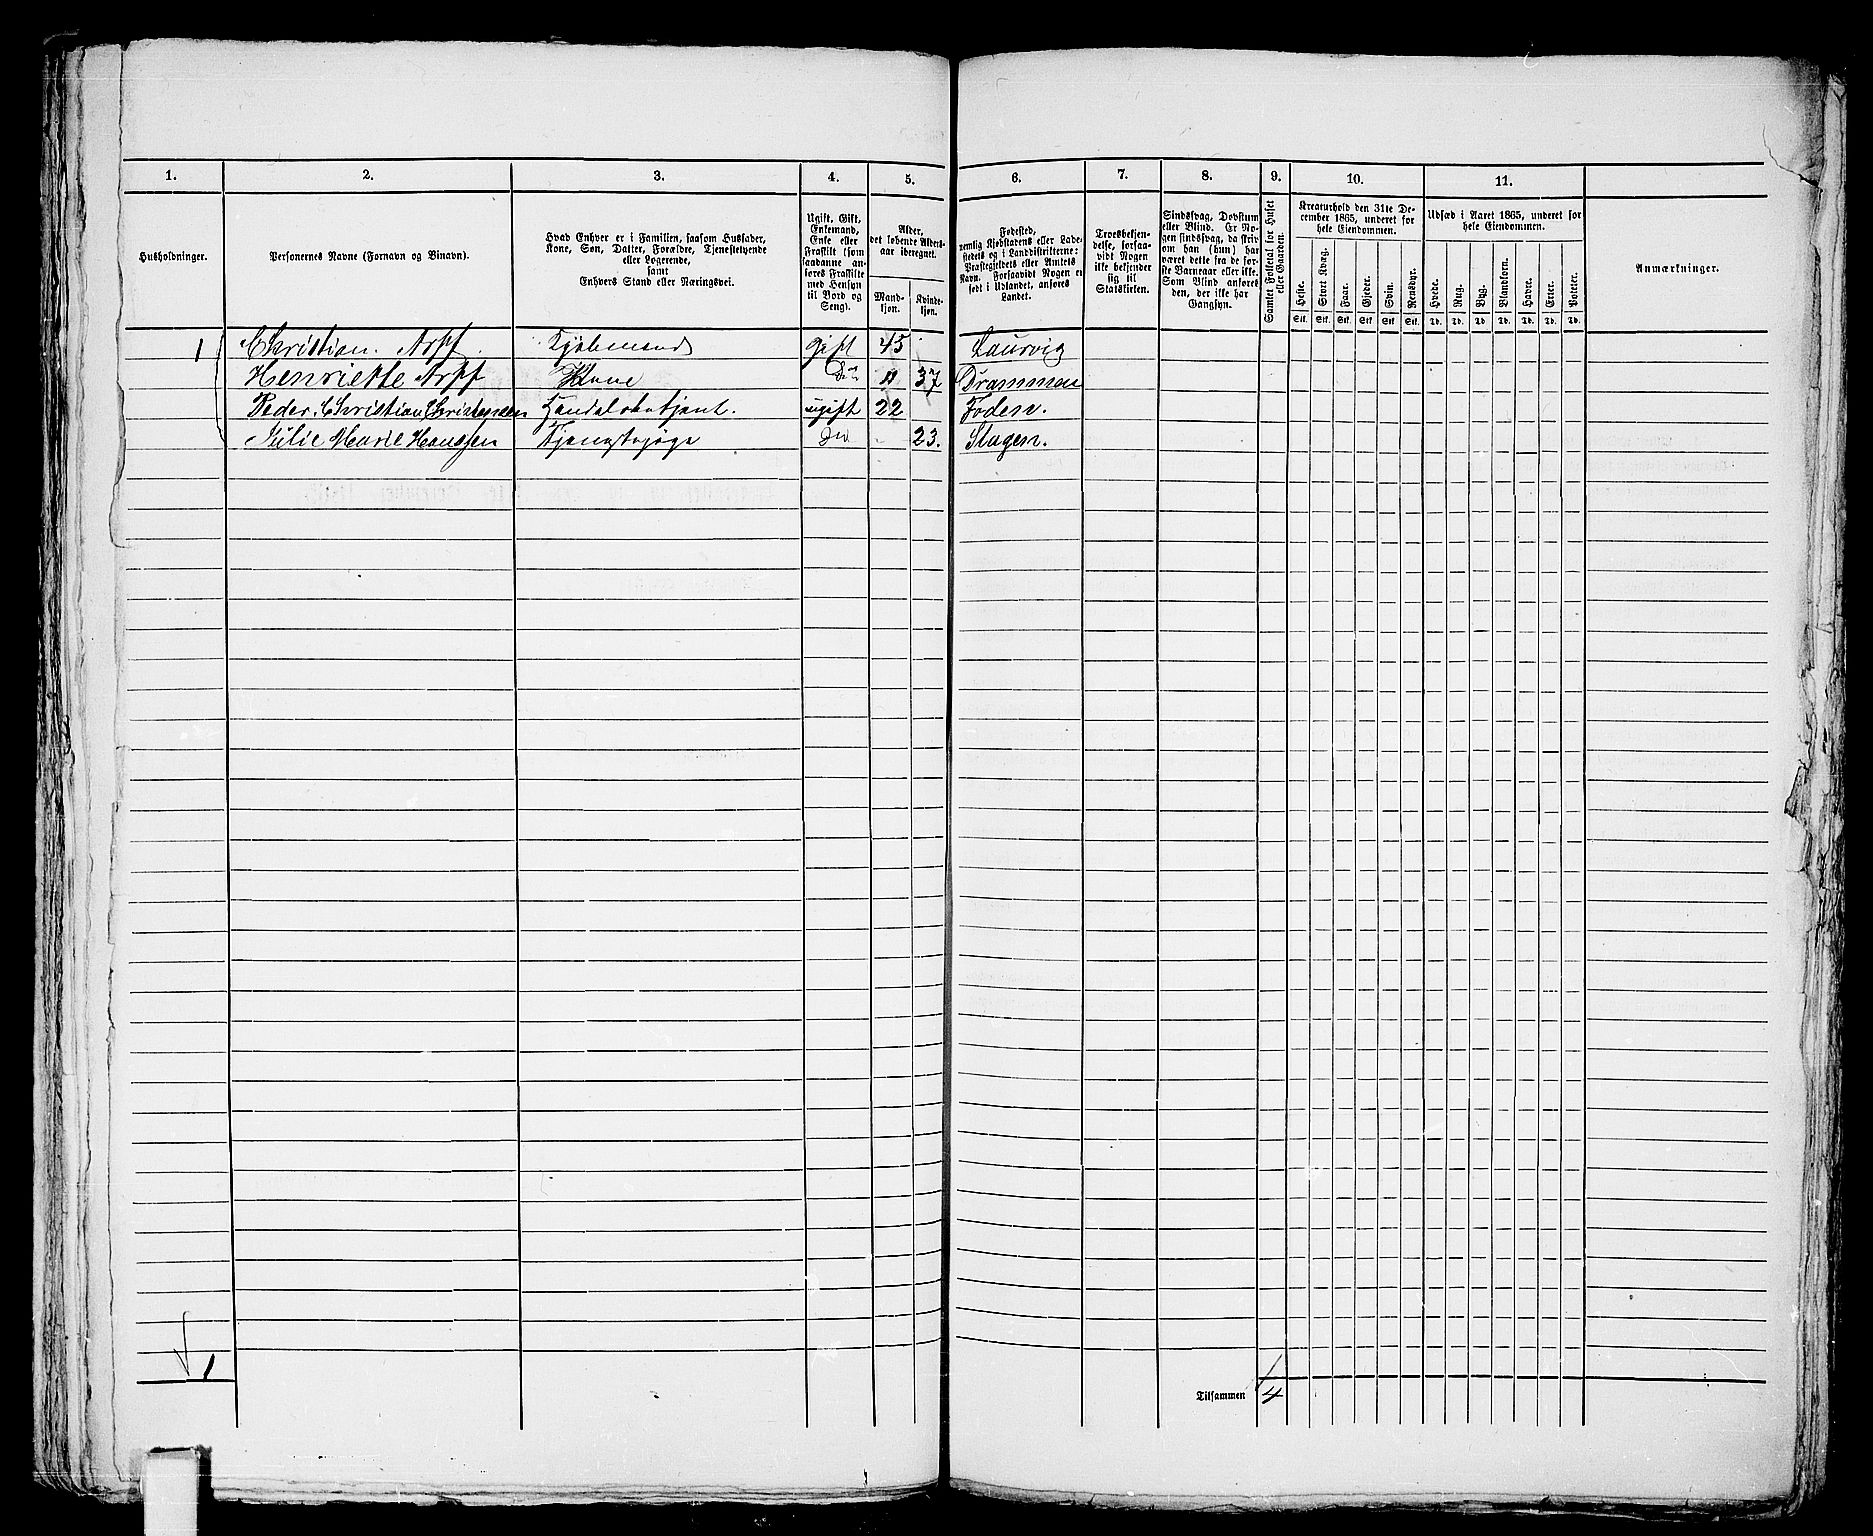 1. 2. 3. 4. 5. 6. 7. 8. 9. 10. 11.
Husholdninger.
Personernes Navne (Fornavn og Binavn).
Hvad Enhver er i Familien, saasom Husfader,
Kone, Søn, Datter, Forældre, Tjenestetyende
eller Logerende,
samt
Enhvers Stand eller Næringsvei.
Ugift, Gift,
Enkemand,
Enke eller
Fraskilt (som
saadanne an-
føres Fraskilte
med Hensyn
til Bord og
Seng).
Alder,
det løbende Alders-
aar iberegnet.
Mand-
kjøn.
Kvinde-
kjøn.
Fødested,
nemlig Kjøbstadens eller Lade-
stedets og i Landdistrikterne:
Præstegjeldets eller Amtets
Navn. Forsaavidt Nogen er
født i Udlandet, anføres
Landet.
Troesbekjen-
delse, forsaa-
vidt Nogen
ikke bekjender
sig til
Statskirken.
Sindssvag, Døvstum
eller Blind. Er No-
gen sindssvag, da skriv
om han (hun) har
været dette fra de før-
ste Barneaar eller ikke.
Som Blind anføres
den, der ikke har
Gangsyn.
Samlet Folketal for Huset
eller Gaarden.
Kreaturhold den 31te De-
cember 1865, underet for
hele Eiendommen.
Heste. Stort Kvæg. Faar. Gjeder. Svin. Rensdyr.
Stk. Stk. Stk. Stk. Stk. Stk.
Udsæd i Aaret 1865, underet for
hele Eiendommen.
Hvede. Rug. Byg. Blandkorn. Havre. Erter. Poteter.
Td. Td. Td. Td. Td. Td. Td.
Anmærkninger.
1 Christian Arpf Kjøbmand gift 45 Laurvig
Henriette Arpf Kone Do " 37 Drammen
Peder Christian Christensen Handelsbetjent. ugift 22 Foden.
Julie Marie Hanssen Tjenestepige Do 23. Slagen.
1
Tilsammen 4